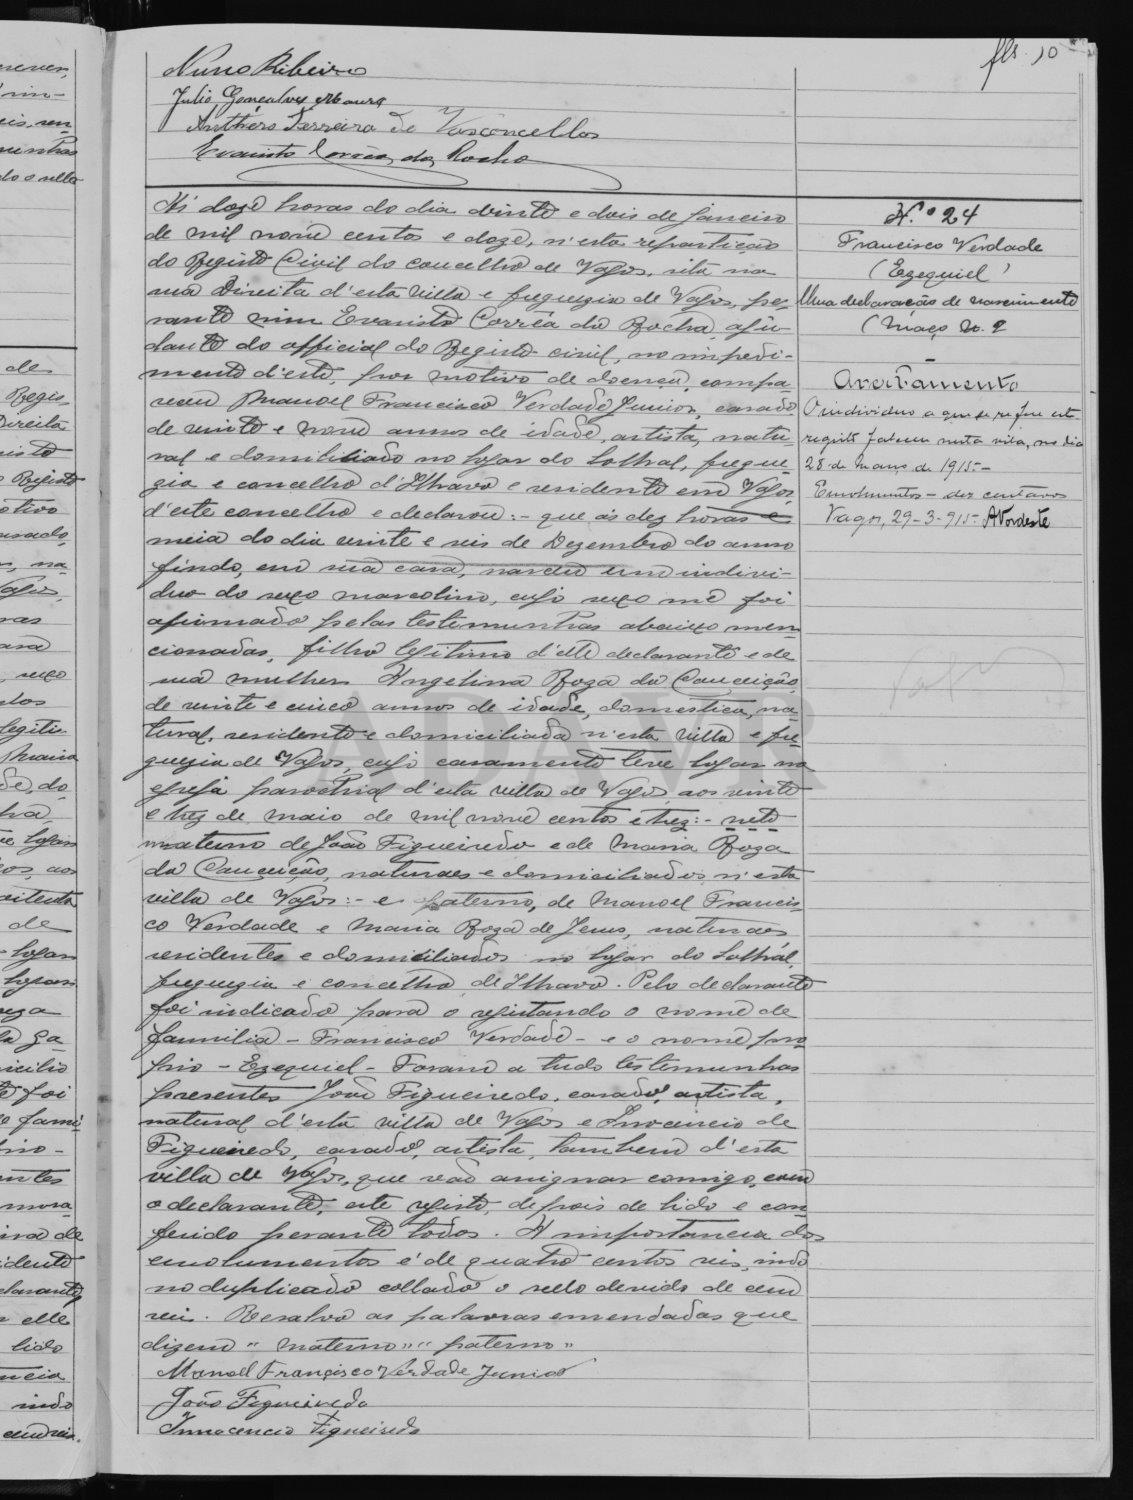 fls. 10
Nuno Ribeiro
Julio Gonçalves Moura
Anthero Ferreira de Vasconcellos
Evaristo Corrêa da Rocha
Ás doze horas do dia vinte e dois de Janeiro
de mil nove centos e doze, n'esta repartição
do Registo Civil do concelho de Vagos, sita na
rua Direita d'esta villa e freguezia de Vagos, pe-
rante mim Evaristo Corrêa da Rocha, aju-
dante do official do Registo civil, no impedi-
mento d'este, por motivo de doença, compa-
receu Manoel Francisco Verdade Junior, casado
de vinte e nove annos de idade, artista, natu-
ral e domiciliado no logar do Sobral, fregue-
zia e concelho d'Ilhavo e residente em Vagos,
d'este concelho e declarou:- que ás dez horas e
meia do dia vinte e seis de Dezembro do anno
findo, em sua casa, nasceu um indivi-
duo do sexo masculino, cujo sexo me foi
afirmado pelas testemunhas abaixo men-
cionadas, filho legitimo d'elle declarante e de
sua mulher Angelina Roza da Conceição,
de vinte e cinco annos de idade, domestica, na-
tural, residente e domiciliada n'esta villa e fre-
guezia de Vagos, cujo casamento teve logar na
egreja parochial d'esta villa de Vagos aos vinte
e trez de maio de mil nove centos e trez:- neto
materno de João Figueiredo e de Maria Roza
da Conceição, naturaes e domiciliados n'esta
villa de Vagos:- e paterno, de Manoel Francis-
co Verdade e Maria Roza de Jesus, naturaes
residentes e domiciliados no logar do Sobral,
freguezia e concelho de Ilhavo. Pelo declarante
foi indicado para o registando o nome de
familia - Francisco Verdade - e o nome pro-
prio - Ezequiel - Foram a tudo testemunhas
presentes João Figueiredo, casado, artista,
natural d'esta villa de Vagos e Innocencio de
Figueiredo, casado, artista, tambem d'esta
villa de Vagos, que vão assignar comigo, com
o declarante, este registo, depois de lido e con-
ferido perante todos. A importancia dos
emolumentos é de quatro centos reis, indo
no duplicado collado o sello devido de cem
reis. Resalvo as palavras emendadas que
dizem "materno" "paterno"
Manoel Francisco Verdade Junior
João Figueiredo
Innocencio Figueiredo
N.º 24
Francisco Verdade
(Ezequiel)
Uma declaração de nascimento
(Maço N. 2
-
Averbamento
O individuo a que se refere este
registo faleceu nesta vila, no dia
28 de março de 1915.-
Emolumentos - dez centavos
Vagos, 29-3-915- ANordeste
ADAVR